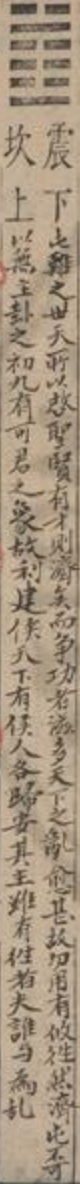 震下
坎上
屯難之世天所以啟聖賢有才則濟矣而爭功者滋多天下之亂愈甚故勿用有攸往然濟屯不可
以無主卦之初九有可君之象故利建侯天下有侯人各歸安其主雖有往者夫誰与為乱